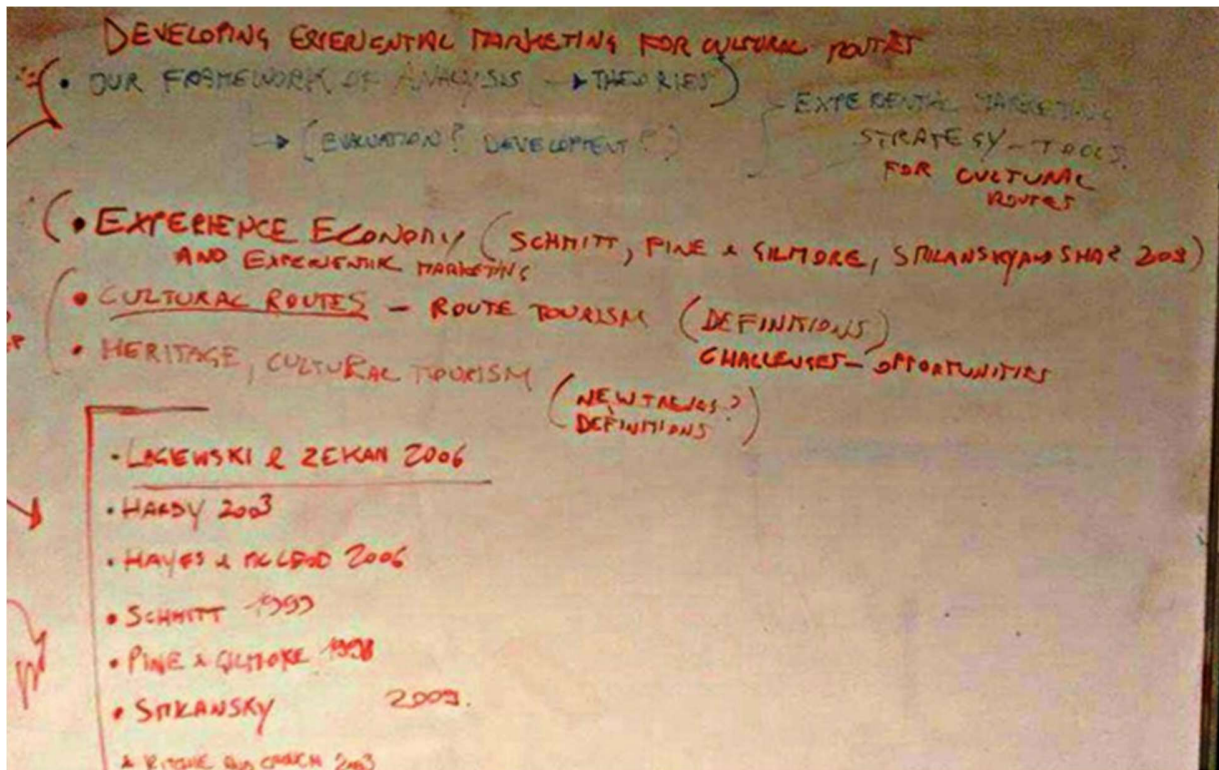 DEVELOPING EXPERIENTIAL MARKETING FOR CULTURAL ROUTES
• OUR FRAMEWORK OF ANALYSIS → THEORIES)
→ [EVALUATION? DEVELOPMENT?]
- EXPERIENTAL MARKETING
STRATEGY - TOOLS.
FOR CULTURAL
ROUTES
(• EXPERIENCE ECONOMY (SCHMITT, PINE & GILMORE, SMILANSKY AND 2009)
AND EXPERIENTIAL MARKETING
• CULTURAL ROUTES - ROUTE TOURISM (DEFINITIONS)
CHALLENGES - OPPORTUNITIES
• HERITAGE, CULTURAL TOURISM
(NEW TRENDS?
DEFINITIONS)
• LAGIEWSKI & ZEKAN 2006
• HARDY 2003
• HAYES & MCLEOD 2006
• SCHMITT 1999
• PINE & GILMORE 1998
• SMILANSKY 2009.
& RITCHIE AND CROUCH 2003